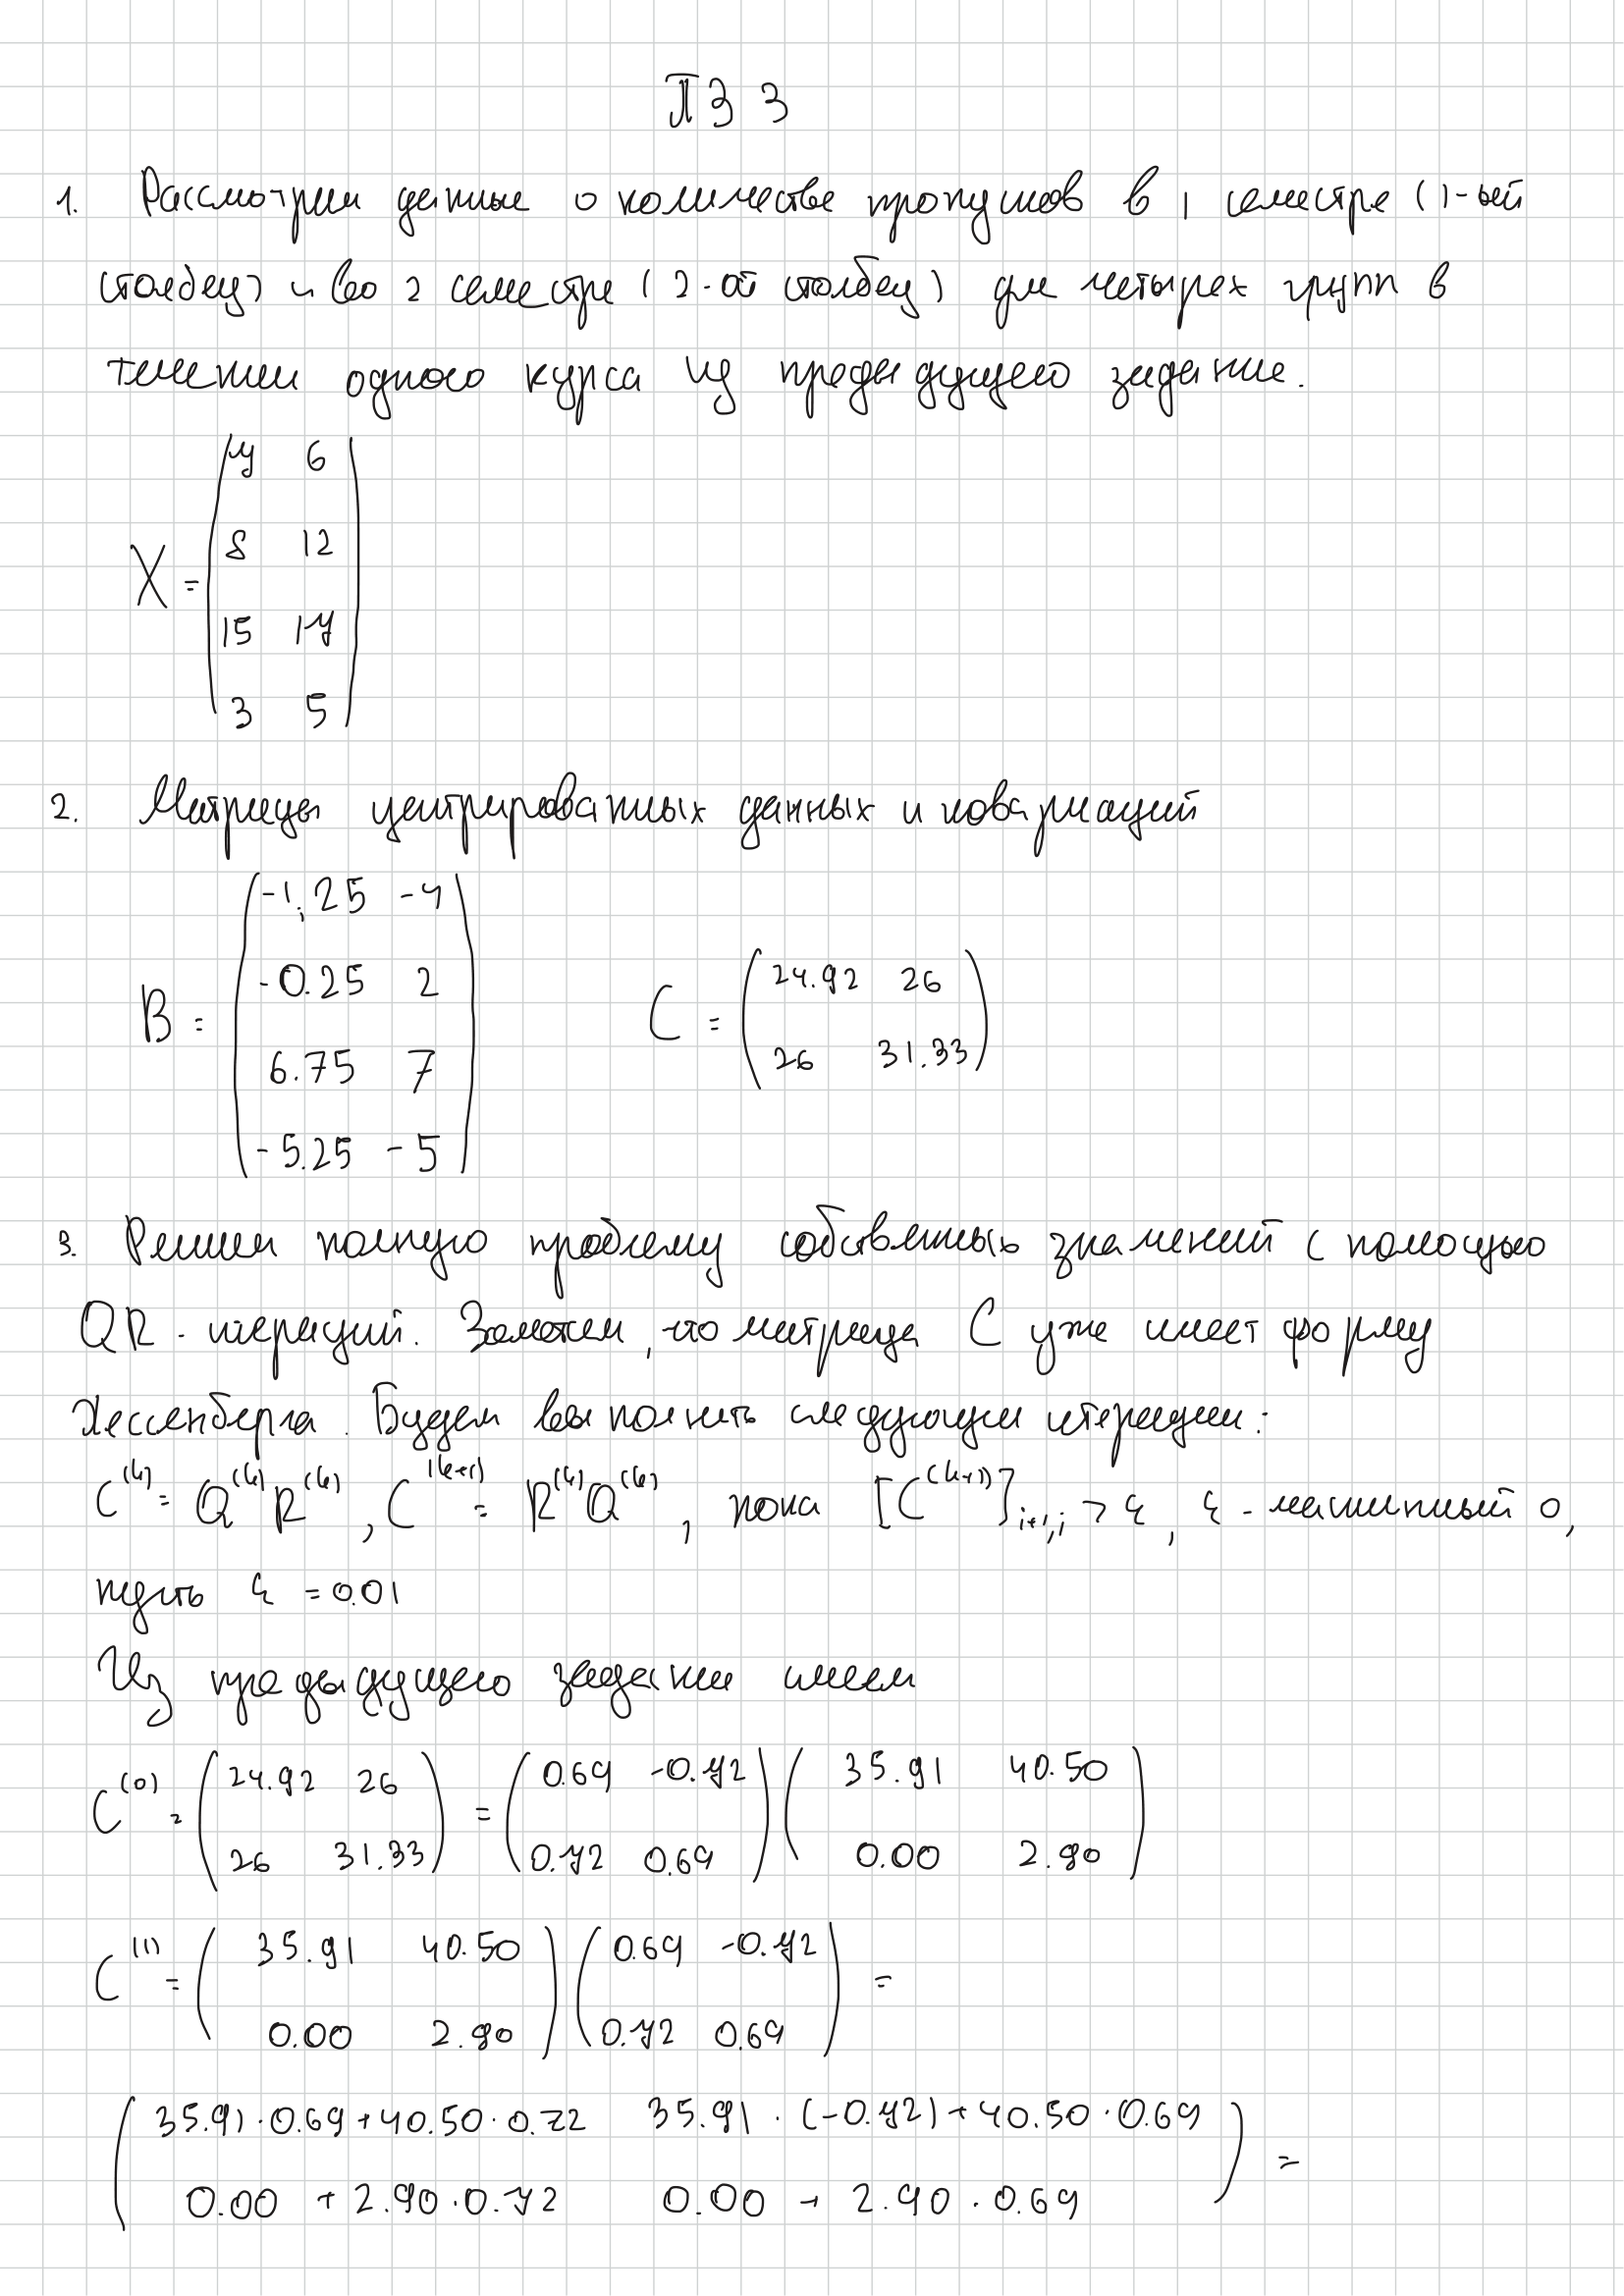 ПЗ 3
1. Рассмотрим данные о количестве пропусков в 1 семестре (1-ый
столбец) и во 2 семестре (2-ой столбец) для четырех групп в
течении одного курса из предыдущего задания.
X = (4 6
8 12
15 17
3 5)
2. Матрицы центрированных данных и ковариаций
B = (-1,25 -4
-0.25 2
6.75 7
-5.25 -5)
C = (24.92 26
26 31.33)
3. Решим полную проблему собственных значений с помощью
QR-итераций. Заметим, что матрица C уже имеет форму
Хессенберга. Будем выполнять следующие итерации:
C^(k) = Q^(k) R^(k), C^(k+1) = R^(k) Q^(k), пока [C^(k+1)]_{i+1,i} > ε, ε - машинный 0,
пусть ε = 0.01
Из предыдущего задания имеем
C^(0) = (24.92 26
26 31.33) = (0.69 -0.72
0.72 0.69) (35.91 40.50
0.00 2.90)
C^(1) = (35.91 40.50
0.00 2.90) (0.69 -0.72
0.72 0.69) =
(35.91·0.69+40.50·0.72 35.91·(-0.72)+40.50·0.69
0.00 + 2.90·0.72 0.00 + 2.90·0.69) =